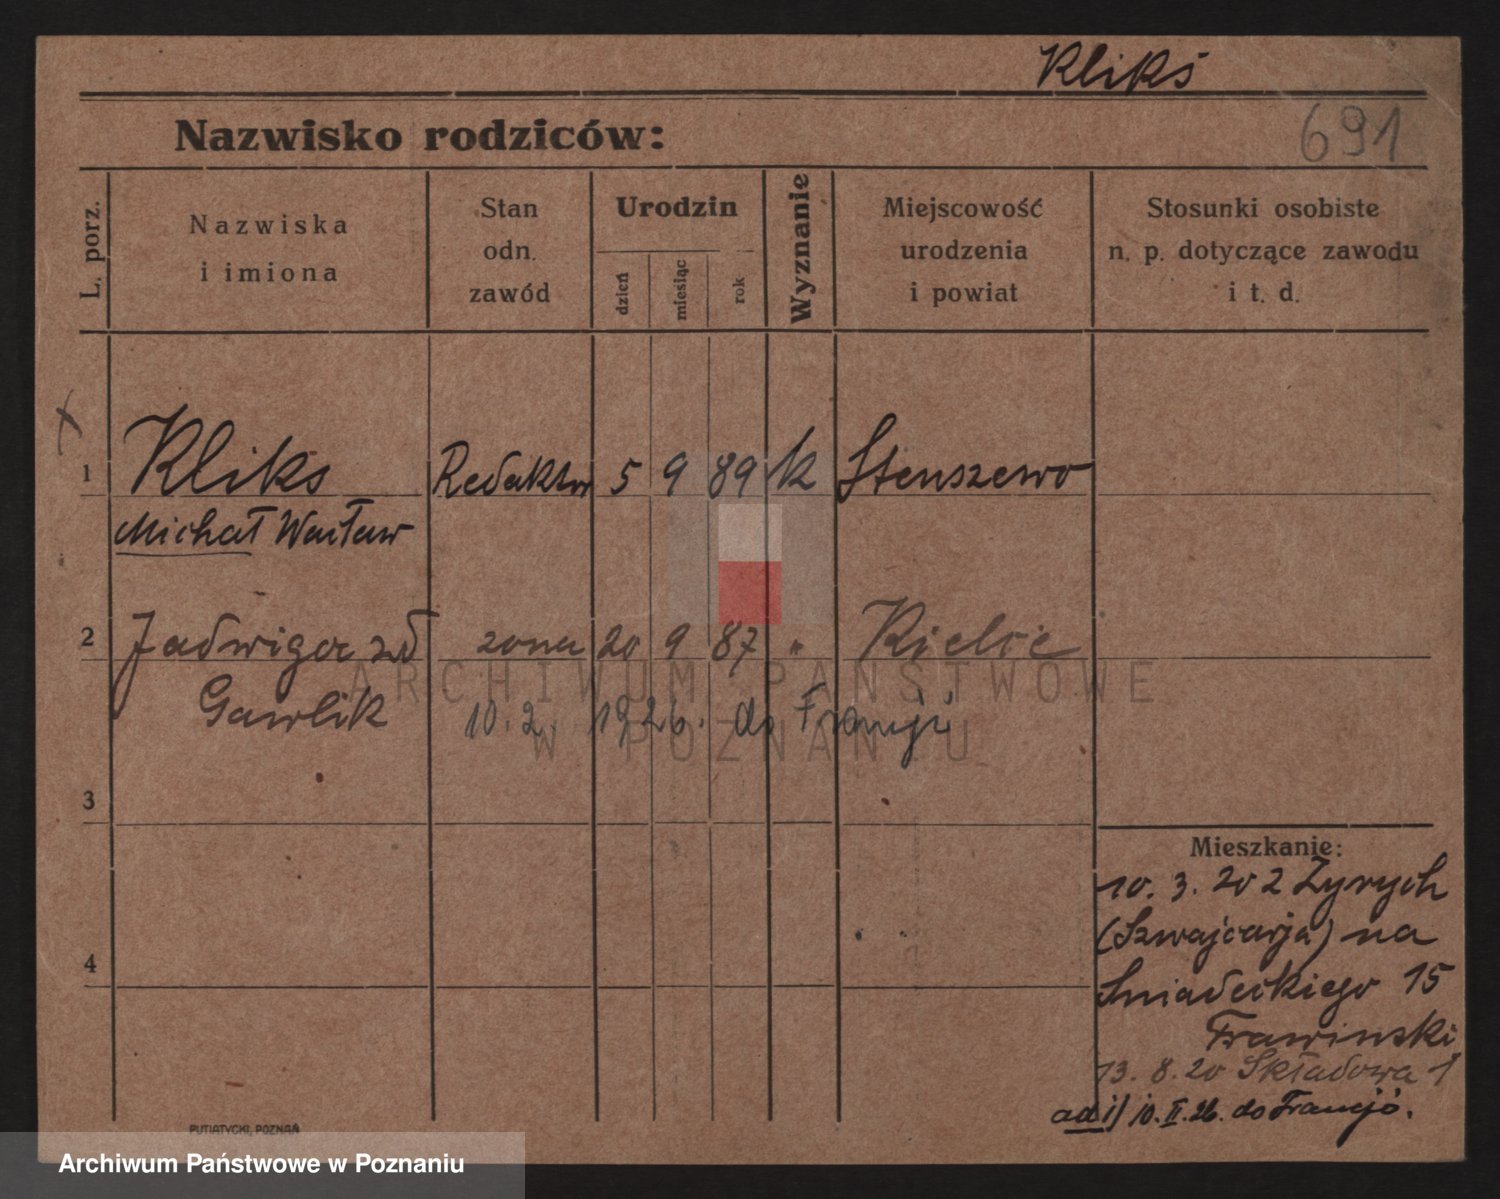 Kliks
691
Nazwisko rodziców:
L. porz.
Nazwiska
i imiona
Stan
odn.
zawód
Urodzin
dzień
miesiąc
rok
Wyznanie
Miejscowość
urodzenia
i powiat
Stosunki osobiste
n. p. dotyczące zawodu
i t. d.
1 Kliks Redaktor 5 9 89 k Stenszewo
Michał Wacław
2 Jadwiga zd żona 20 9 87 " Kielce
Gawlik 10. 2. 1926. do Francji
ARCHIWUM PAŃSTWOWE
W POZNANIU
3
4
Mieszkanie:
10. 3. 20 z Zyrych
(Szwajcarja) na
Sniadeckiego 15
13. 8. 20 Składowa 1
ad 1) 10. II. 26. do Francji.
PUTIATYCKI, POZNAŃ
Archiwum Państwowe w Poznaniu